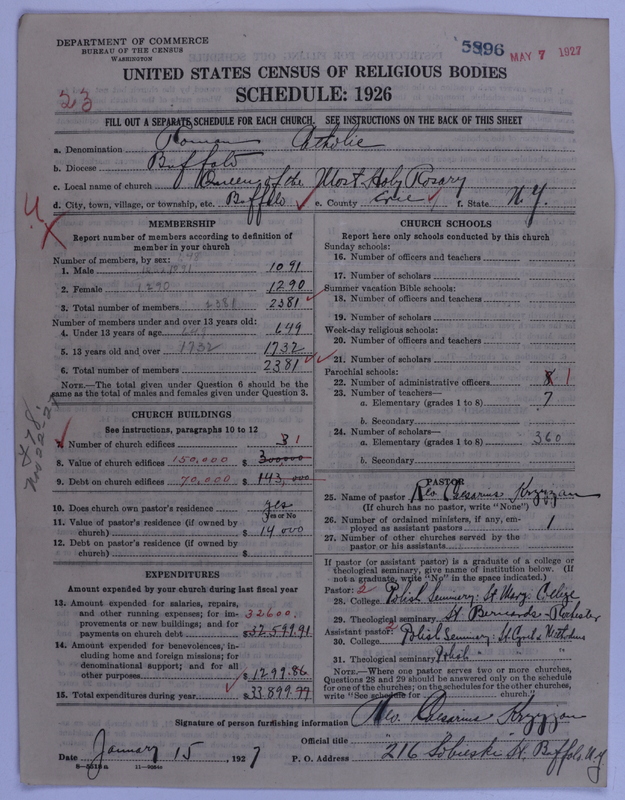 DEPARTMENT OF COMMERCE
BUREAU OF THE CENSUS
WASHINGTON
5896
MAY 7 1927
UNITED STATES CENSUS OF RELIGIOUS BODIES
SCHEDULE: 1926
23
FILL OUT A SEPARATE SCHEDULE FOR EACH CHURCH. SEE INSTRUCTIONS ON THE BACK OF THIS SHEET
a. Denomination Roman Catholic
b. Diocese Buffalo
c. Local name of church Queen of the Most Holy Rosary
d. City, town, village, or township, etc. Buffalo e. County Erie f. State N.Y.
MEMBERSHIP
Report number of members according to definition of
member in your church
Number of members, by sex:
1. Male 1091
2. Female 1290 1290
3. Total number of members 2381 2381
Number of members under and over 13 years old:
4. Under 13 years of age 649 649
5. 13 years old and over 1732 1732
6. Total number of members 2381
NOTE.—The total given under Question 6 should be the
same as the total of males and females given under Question 3.
CHURCH BUILDINGS
See instructions, paragraphs 10 to 12
7. Number of church edifices 3 1
8. Value of church edifices 150,000 $ 300,000
9. Debt on church edifices 70,000 $ 143,000
10. Does church own pastor's residence? yes
Yes or No
11. Value of pastor's residence (if owned by
church) $ 14 000
12. Debt on pastor's residence (if owned by
church) $
EXPENDITURES
Amount expended by your church during last fiscal year
13. Amount expended for salaries, repairs,
and other running expenses; for im- 32600.
provements or new buildings; and for
payments on church debt $ 32,599.91
14. Amount expended for benevolences, in-
cluding home and foreign missions; for
denominational support; and for all
other purposes $ 1299.86
15. Total expenditures during year $ 33,899.77
CHURCH SCHOOLS
Report here only schools conducted by this church
Sunday schools:
16. Number of officers and teachers
17. Number of scholars
Summer vacation Bible schools:
18. Number of officers and teachers
19. Number of scholars
Week-day religious schools:
20. Number of officers and teachers
21. Number of scholars
Parochial schools:
22. Number of administrative officers 1
23. Number of teachers—
a. Elementary (grades 1 to 8) 7
b. Secondary
24. Number of scholars—
a. Elementary (grades 1 to 8) 360
b. Secondary
PASTOR
25. Name of pastor Rev. Caesarius Krzyzan
(If church has no pastor, write "None")
26. Number of ordained ministers, if any, em-
ployed as assistant pastors 1
27. Number of other churches served by the
pastor or his assistants
If pastor (or assistant pastor) is a graduate of a college or
theological seminary, give name of institution below. (If
not a graduate, write "No" in the space indicated.)
Pastor: 2
28. College Polish Seminary: St Mary: College
29. Theological seminary St Bernards - Rochester
Assistant pastor: 2
30. College Polish Seminary: St Cyril & Methodius
31. Theological seminary Polish
NOTE.—Where one pastor serves two or more churches,
Questions 28 and 29 should be answered only on the schedule
for one of the churches; on the schedules for the other churches,
write "See schedule for church."
Signature of person furnishing information Rev. Caesarius Krzyzan
Official title
Date January 15, 1927 P. O. Address 216 Sobieski St, Buffalo, N.Y.
8—5518a 11—9054a